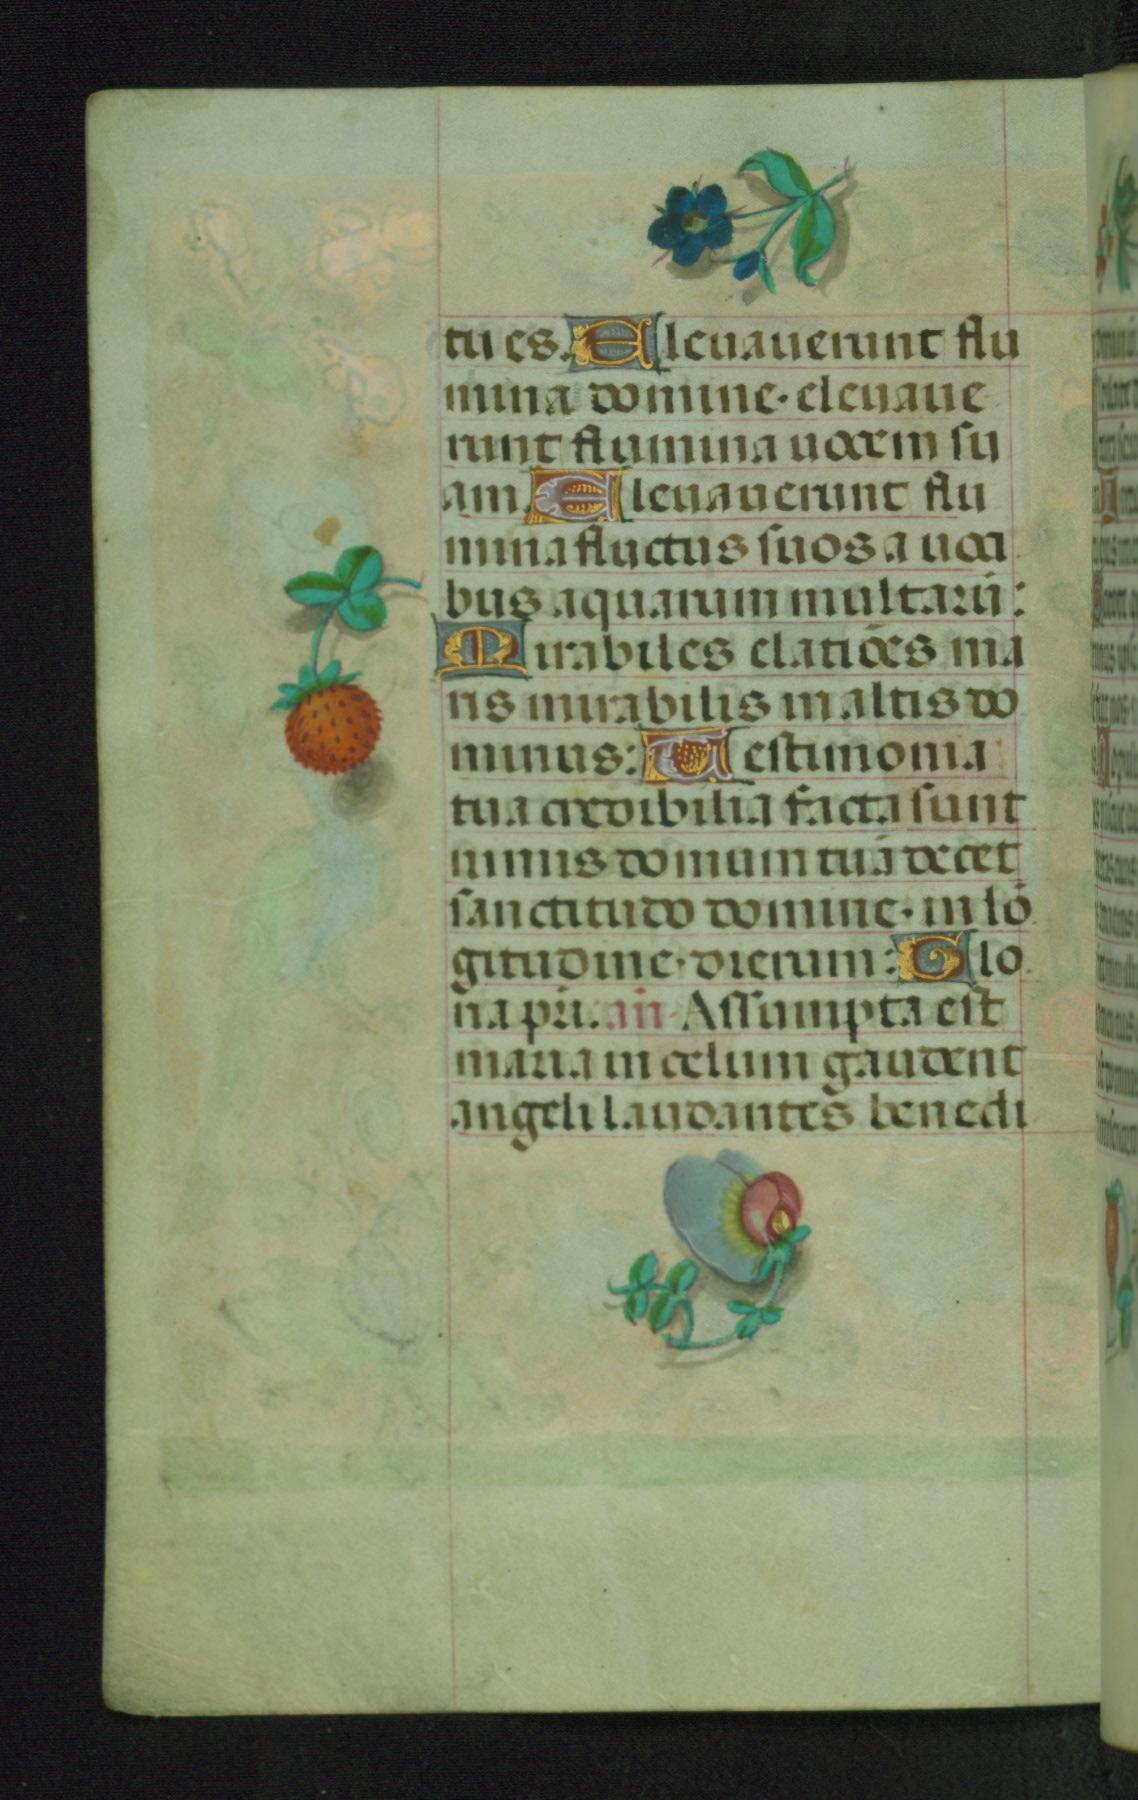 tu es. Eleuauerunt flu
mina domine· eleuaue
runt flumina uocem su
am. Eleuauerunt flu
mina fluctus suos a uoci
bus aquarum multarū:
Mirabiles elatiōes ma
ris mirabilis in altis do
minus: Testimonia
tua credibilia facta sunt
nimis domum tuā decet
sanctitudo domine· in lō
gitudine· dierum: Glo
ria pri. añ· Assumpta est
maria in celum gaudent
angeli laudantes benedi